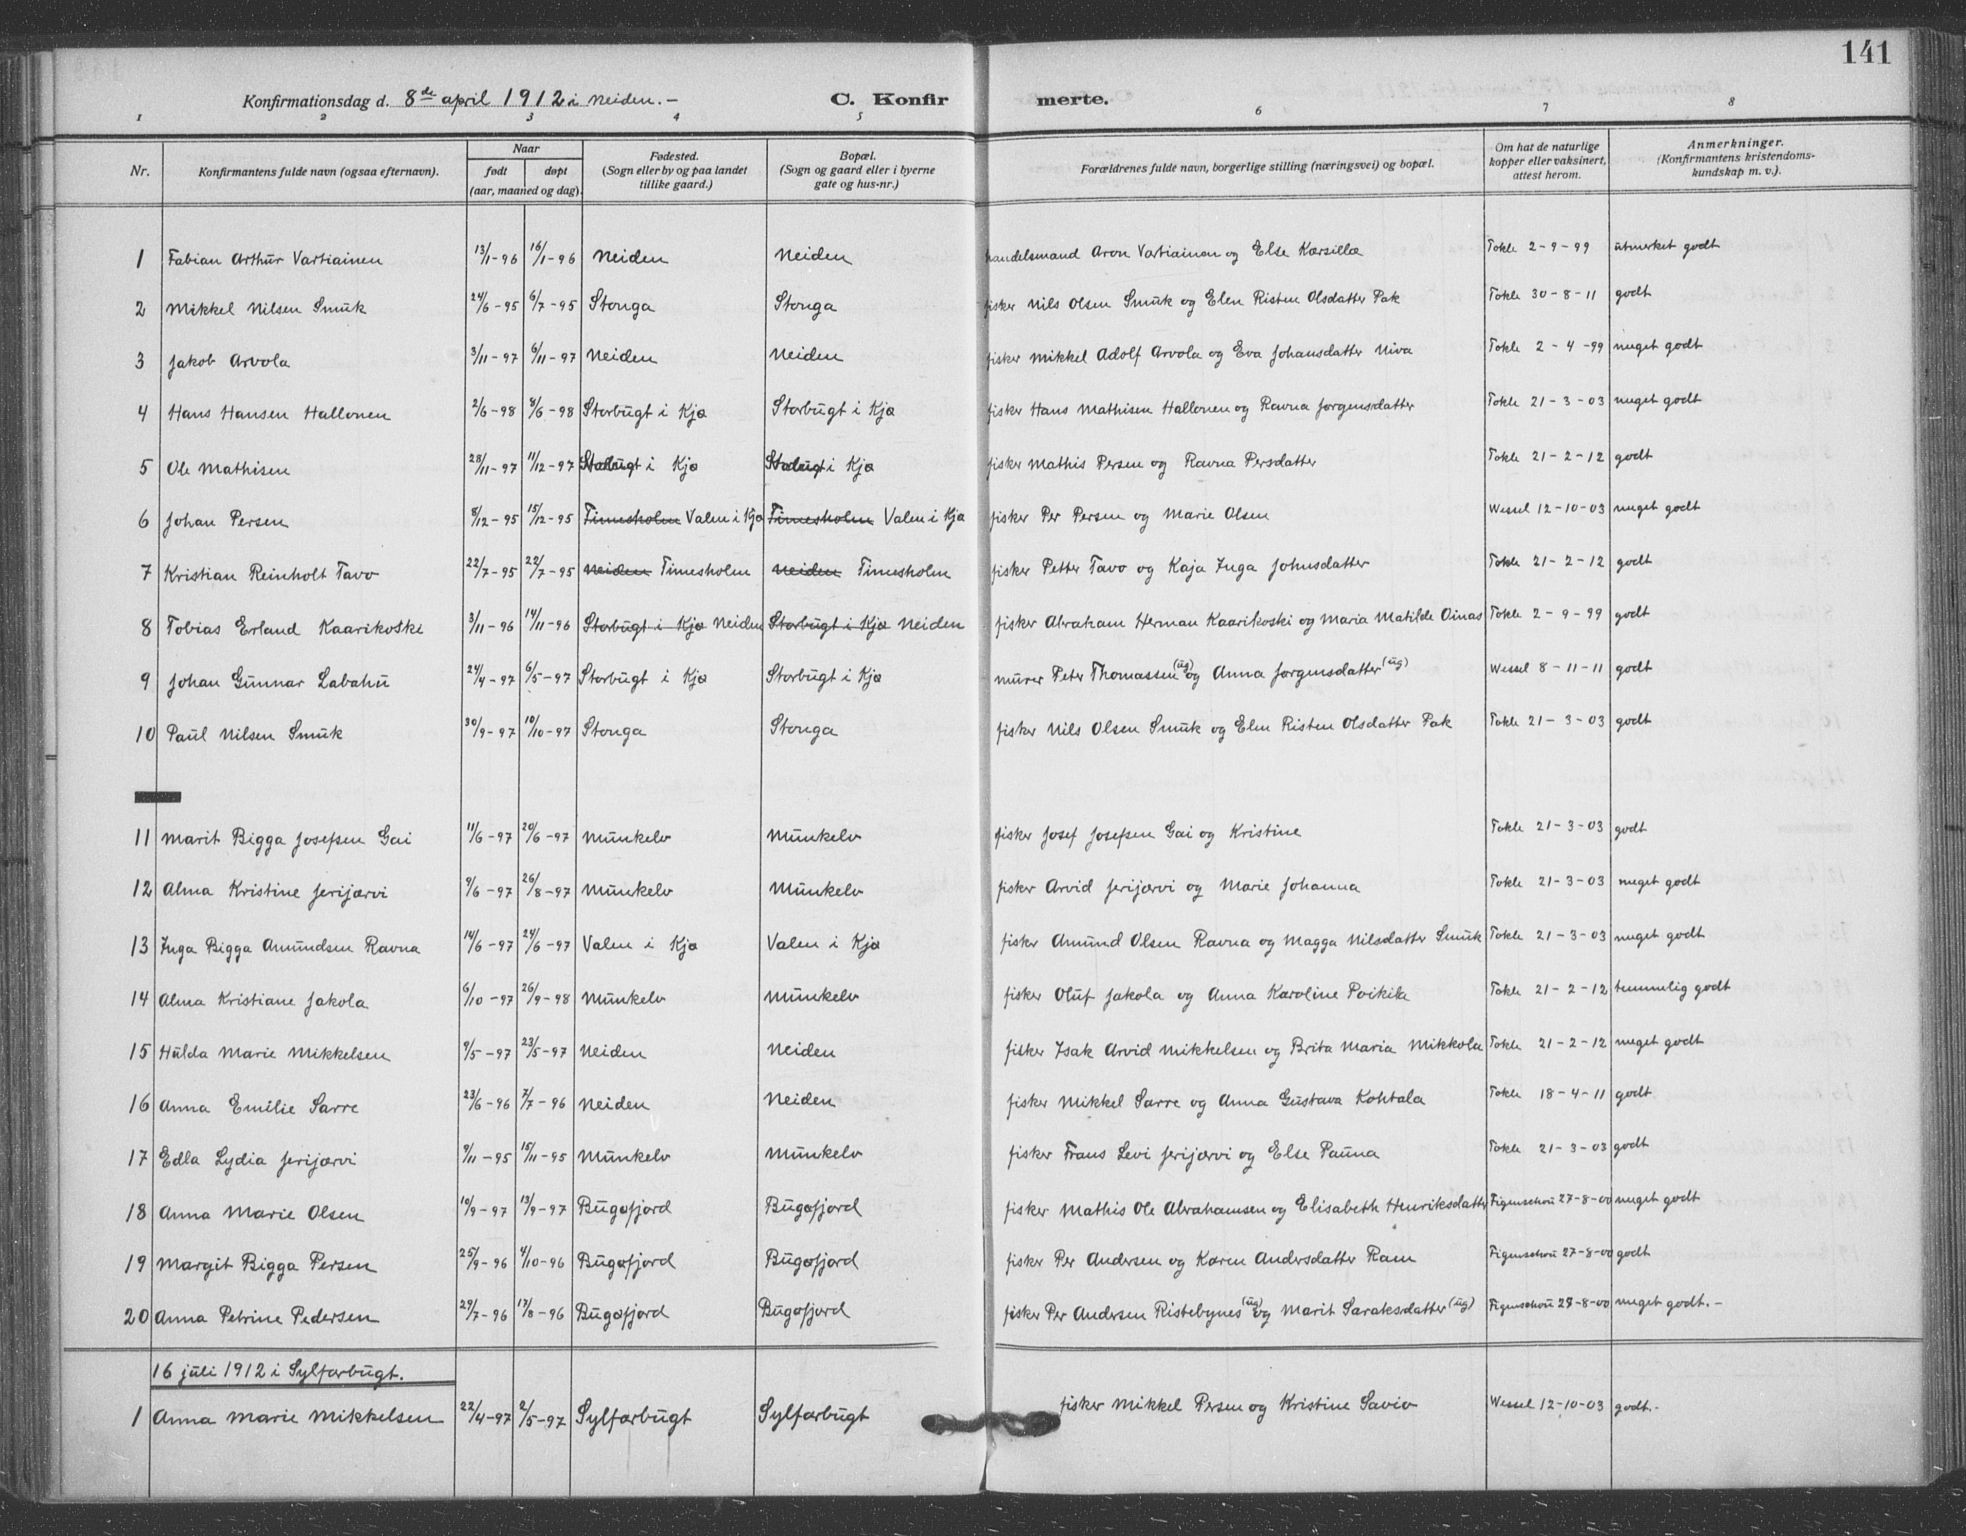 141
Konfirmationsdag d. 8de april 1912 i Neiden. – C. Konfirmerte.
1 2 3 4 5 6 7 8
Nr. Konfirmantens fulde navn (ogsaa efternavn). Naar født døpt (aar, maaned og dag). Fødested. (Sogn eller by og paa landet tillike gaard.) Bopæl. (Sogn og gaard eller i byerne gate og hus-nr.) Forældrenes fulde navn, borgerlige stilling (næringsvei) og bopæl. Om hat de naturlige kopper eller vaksinert, attest herom. Anmerkninger. (Konfirmantens kristendomskundskap m. v.).
1 Fabian Arthur Vartiainen 13/1-96 16/1-96 Neiden Neiden handelsmand Aron Vartiainen og Else Karsilla Tokle 2-9-99 utmerket godt
2 Mikkel Nilsen Smuk 24/6-95 6/7-95 Stonga Stonga fisker Nils Olsen Smuk og Elen Risten Olsdatter Pak Tokle 30-8-11 godt
3 Jakob Arvola 3/11-97 6/11-97 Neiden Neiden fisker Mikkel Adolf Arvola og Eva Johansdatter Niva Tokle 2-4-99 meget godt
4 Hans Hansen Hallonen 2/6-98 8/6-98 Storbugt i Kjø Storbugt i Kjø fisker Hans Mathisen Hallonen og Ravna Jørgensdatter Tokle 21-3-03 meget godt
5 Ole Mathisen 28/11-97 11/12-97 i Kjø i Kjø fisker Mathis Persen og Ravna Persdatter Tokle 21-2-12 godt
6 Johan Persen 8/12-95 15/12-95 Timesholm Valen i Kjø Timesholm Valen i Kjø fisker Per Persen og Marie Olsen Wessel 12-10-03 meget godt
7 Kristian Reinholt Tavo 22/7-95 22/7-95 Neiden Timesholm Neiden Timesholm fisker Petter Tavo og Kaja Inga Johnsdatter Tokle 21-2-12 godt
8 Tobias Erland Kaarikoski 3/11-96 14/11-96 Storbugt i Kjø Neiden Storbugt i Kjø Neiden fisker Abraham Herman Kaarikoski og Maria Matilde Oinas Tokle 2-9-99 godt
9 Johan Gunnar Labahu 24/4-97 6/5-97 Storbugt i Kjø Storbugt i Kjø murer Peter Thomassen (ug) og Anna Jørgensdatter (ug) Wessel 8-11-11 godt
10 Paul Nilsen Smuk 30/9-97 10/10-97 Stonga Stonga fisker Nils Olsen Smuk og Elen Risten Olsdatter Pak Tokle 21-3-03 godt
11 Marit Bigga Josefsen Gai 11/6-97 20/6-97 Munkelv Munkelv fisker Josef Josefsen Gai og Kristine Tokle 21-3-03 godt
12 Alma Kristine Jerijærvi 9/6-97 26/8-97 Munkelv Munkelv fisker Arvid Jerijærvi og Marie Johanna Tokle 21-3-03 meget godt
13 Inga Bigga Amundsen Ravna 14/6-97 24/6-97 Valen i Kjø Valen i Kjø fisker Amund Olsen Ravna og Magga Nilsdatter Smuk Tokle 21-3-03 meget godt
14 Alma Kristiane Jakola 6/10-97 26/9-98 Munkelv Munkelv fisker Oluf Jakola og Anna Karoline Poikila Tokle 21-2-12 temmelig godt
15 Hulda Marie Mikkelsen 9/5-97 23/5-97 Neiden Neiden fisker Isak Arvid Mikkelsen og Brita Maria Mikkola Tokle 21-2-12 meget godt
16 Anna Emilie Sarre 23/6-96 7/7-96 Neiden Neiden fisker Mikkel Sarre og Anna Gustava Kohtala Tokle 18-4-11 godt
17 Edla Lydia Jerijærvi 9/11-95 15/11-95 Munkelv Munkelv fisker Frans Levi Jerijærvi og Else Pauna Tokle 21-3-03 godt
18 Anna Marie Olsen 10/9-97 13/9-97 Bugøfjord Bugøfjord fisker Mathis Ole Abrahamsen og Elisabeth Henriksdatter Figenschou 27-8-00 meget godt
19 Margit Bigga Persen 25/9-96 4/10-96 Bugøfjord Bugøfjord fisker Per Andersen og Karen Andersdatter Ram Figenschou 27-8-00 godt
20 Anna Petrine Pedersen 29/7-96 17/8-96 Bugøfjord Bugøfjord fisker Per Andersen Ristebynes (ug) og Marit Saraksdatter (ug) Figenschou 27-8-00 meget godt. –
16 juli 1912 i Sylfarbugt.
1 Anna Marie Mikkelsen 22/4-97 2/5-97 Sylfarbugt Sylfarbugt fisker Mikkel Persen og Kristine Savio Wessel 12-10-03 godt. –